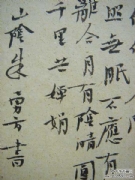 照無眠不應有
離合月有陰晴圓
千里共嬋娟
山陰朱勇方書